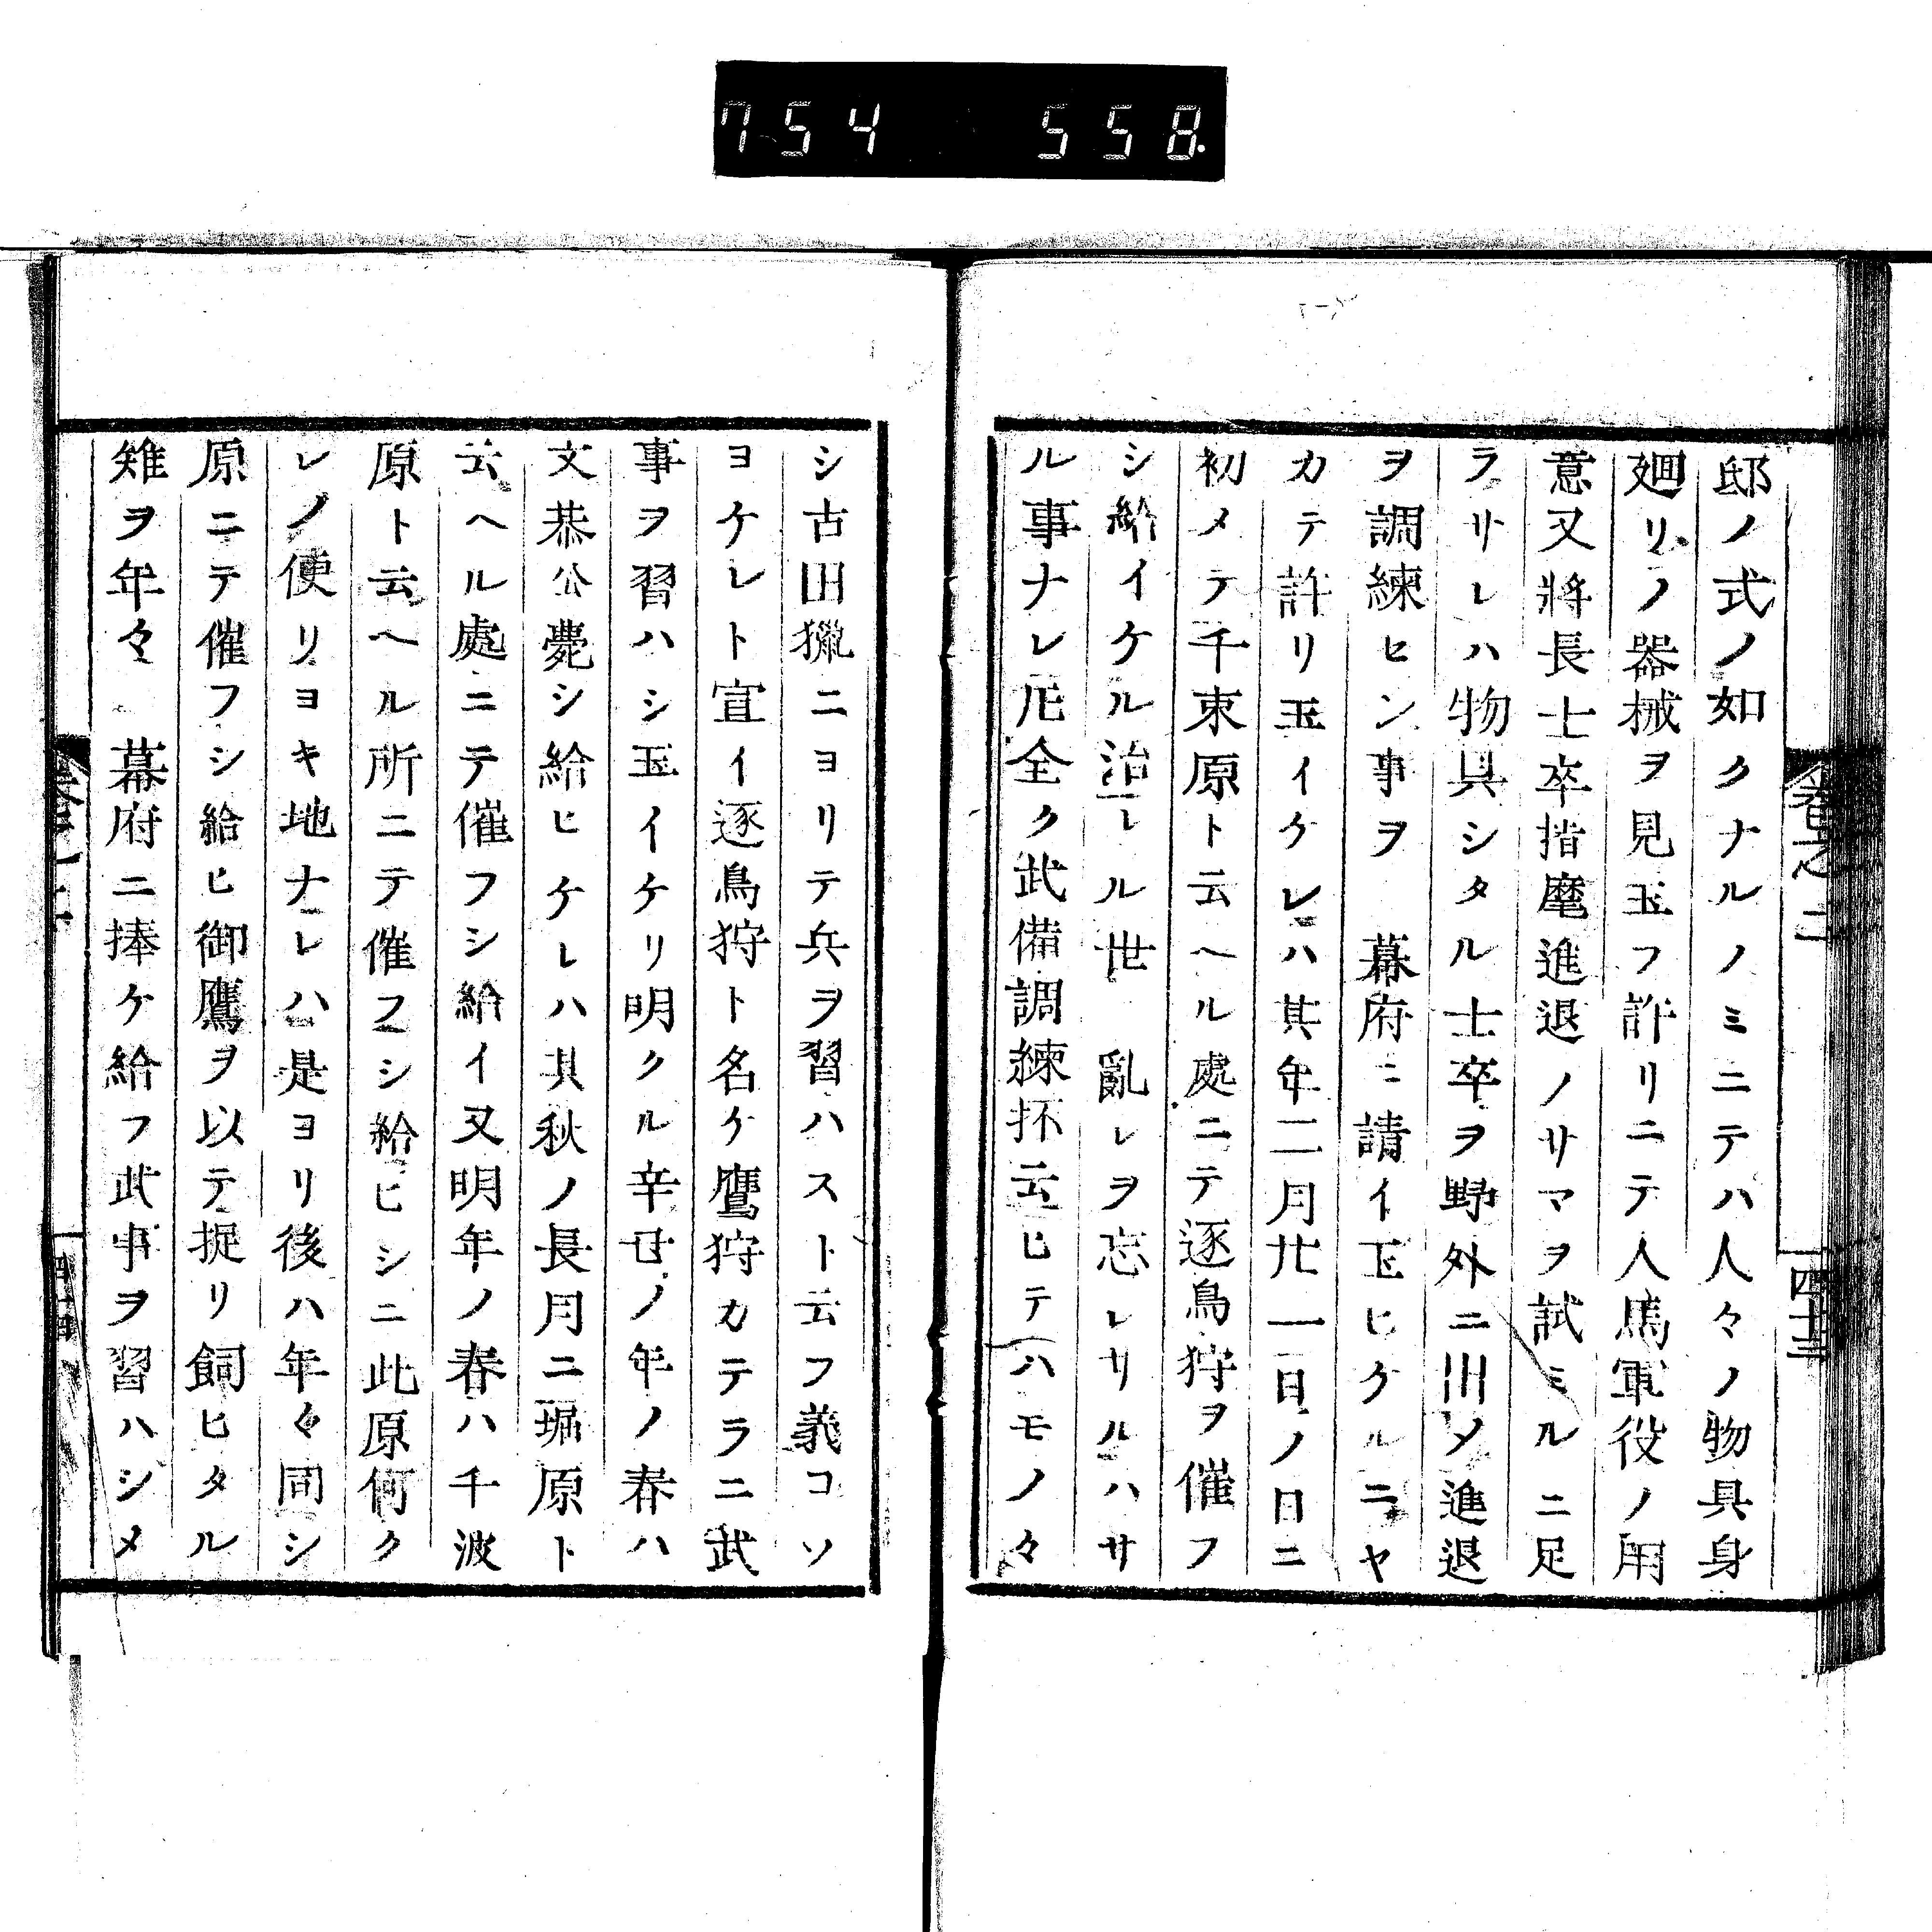 754 558.
卷之二
四十三
邸ノ式ノ如クナルノミニテハ人々ノ物具身
廻リノ器械ヲ見玉フ許リニテ人馬軍役ノ用
意又將長士卒指麾進退ノサマヲ試ミルニ足
ラサレハ物具シタル士卒ヲ野外ニ川メ進退
ヲ調練ヒン事ヲ 幕府ニ請イ玉ヒケルニヤ
カテ許リ玉イケレハ其年二月廿一日ノ日ニ
初メテ千束原ト云ヘル處ニテ逐鳥狩ヲ催フ
シ給イケル治レル世 亂レヲ忘レサルハサ
ル事ナレ𪜈全ク武備調練抔云ヒテハモノ々
シ古田獵ニヨリテ兵ヲ習ハスト云フ義コソ
ヨケレト宣イ逐鳥狩ト名ケ鷹狩カテラニ武
事ヲ習ハシ玉イケリ明クル辛丑ノ年ノ春ハ
文恭公薨シ給ヒケレハ其秋ノ長月ニ堀原ト
云ヘル處ニテ催フシ給イ又明年ノ春ハ千波
原ト云ヘル所ニテ催フシ給ヒシニ此原何ク
レノ便リヨキ地ナレハ是ヨリ後ハ年々同シ
原ニテ催フシ給ヒ御鷹ヲ以テ捉リ飼ヒタル
雉ヲ年々 幕府ニ捧ケ給フ武事ヲ習ハシメ